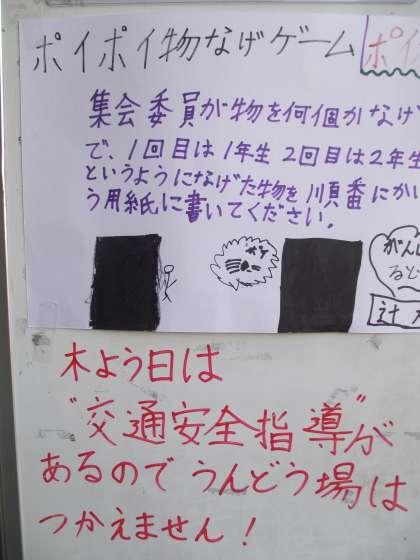 ポイポイ物なげゲーム
ポイ
集会委員が物を何個かなげ
で、1回目は1年生 2回目は2年生
というようになげた物を順番にかい
う用紙に書いてください。
木よう日は
"交通安全指導"が
あるので うんどう場は
つかえません!